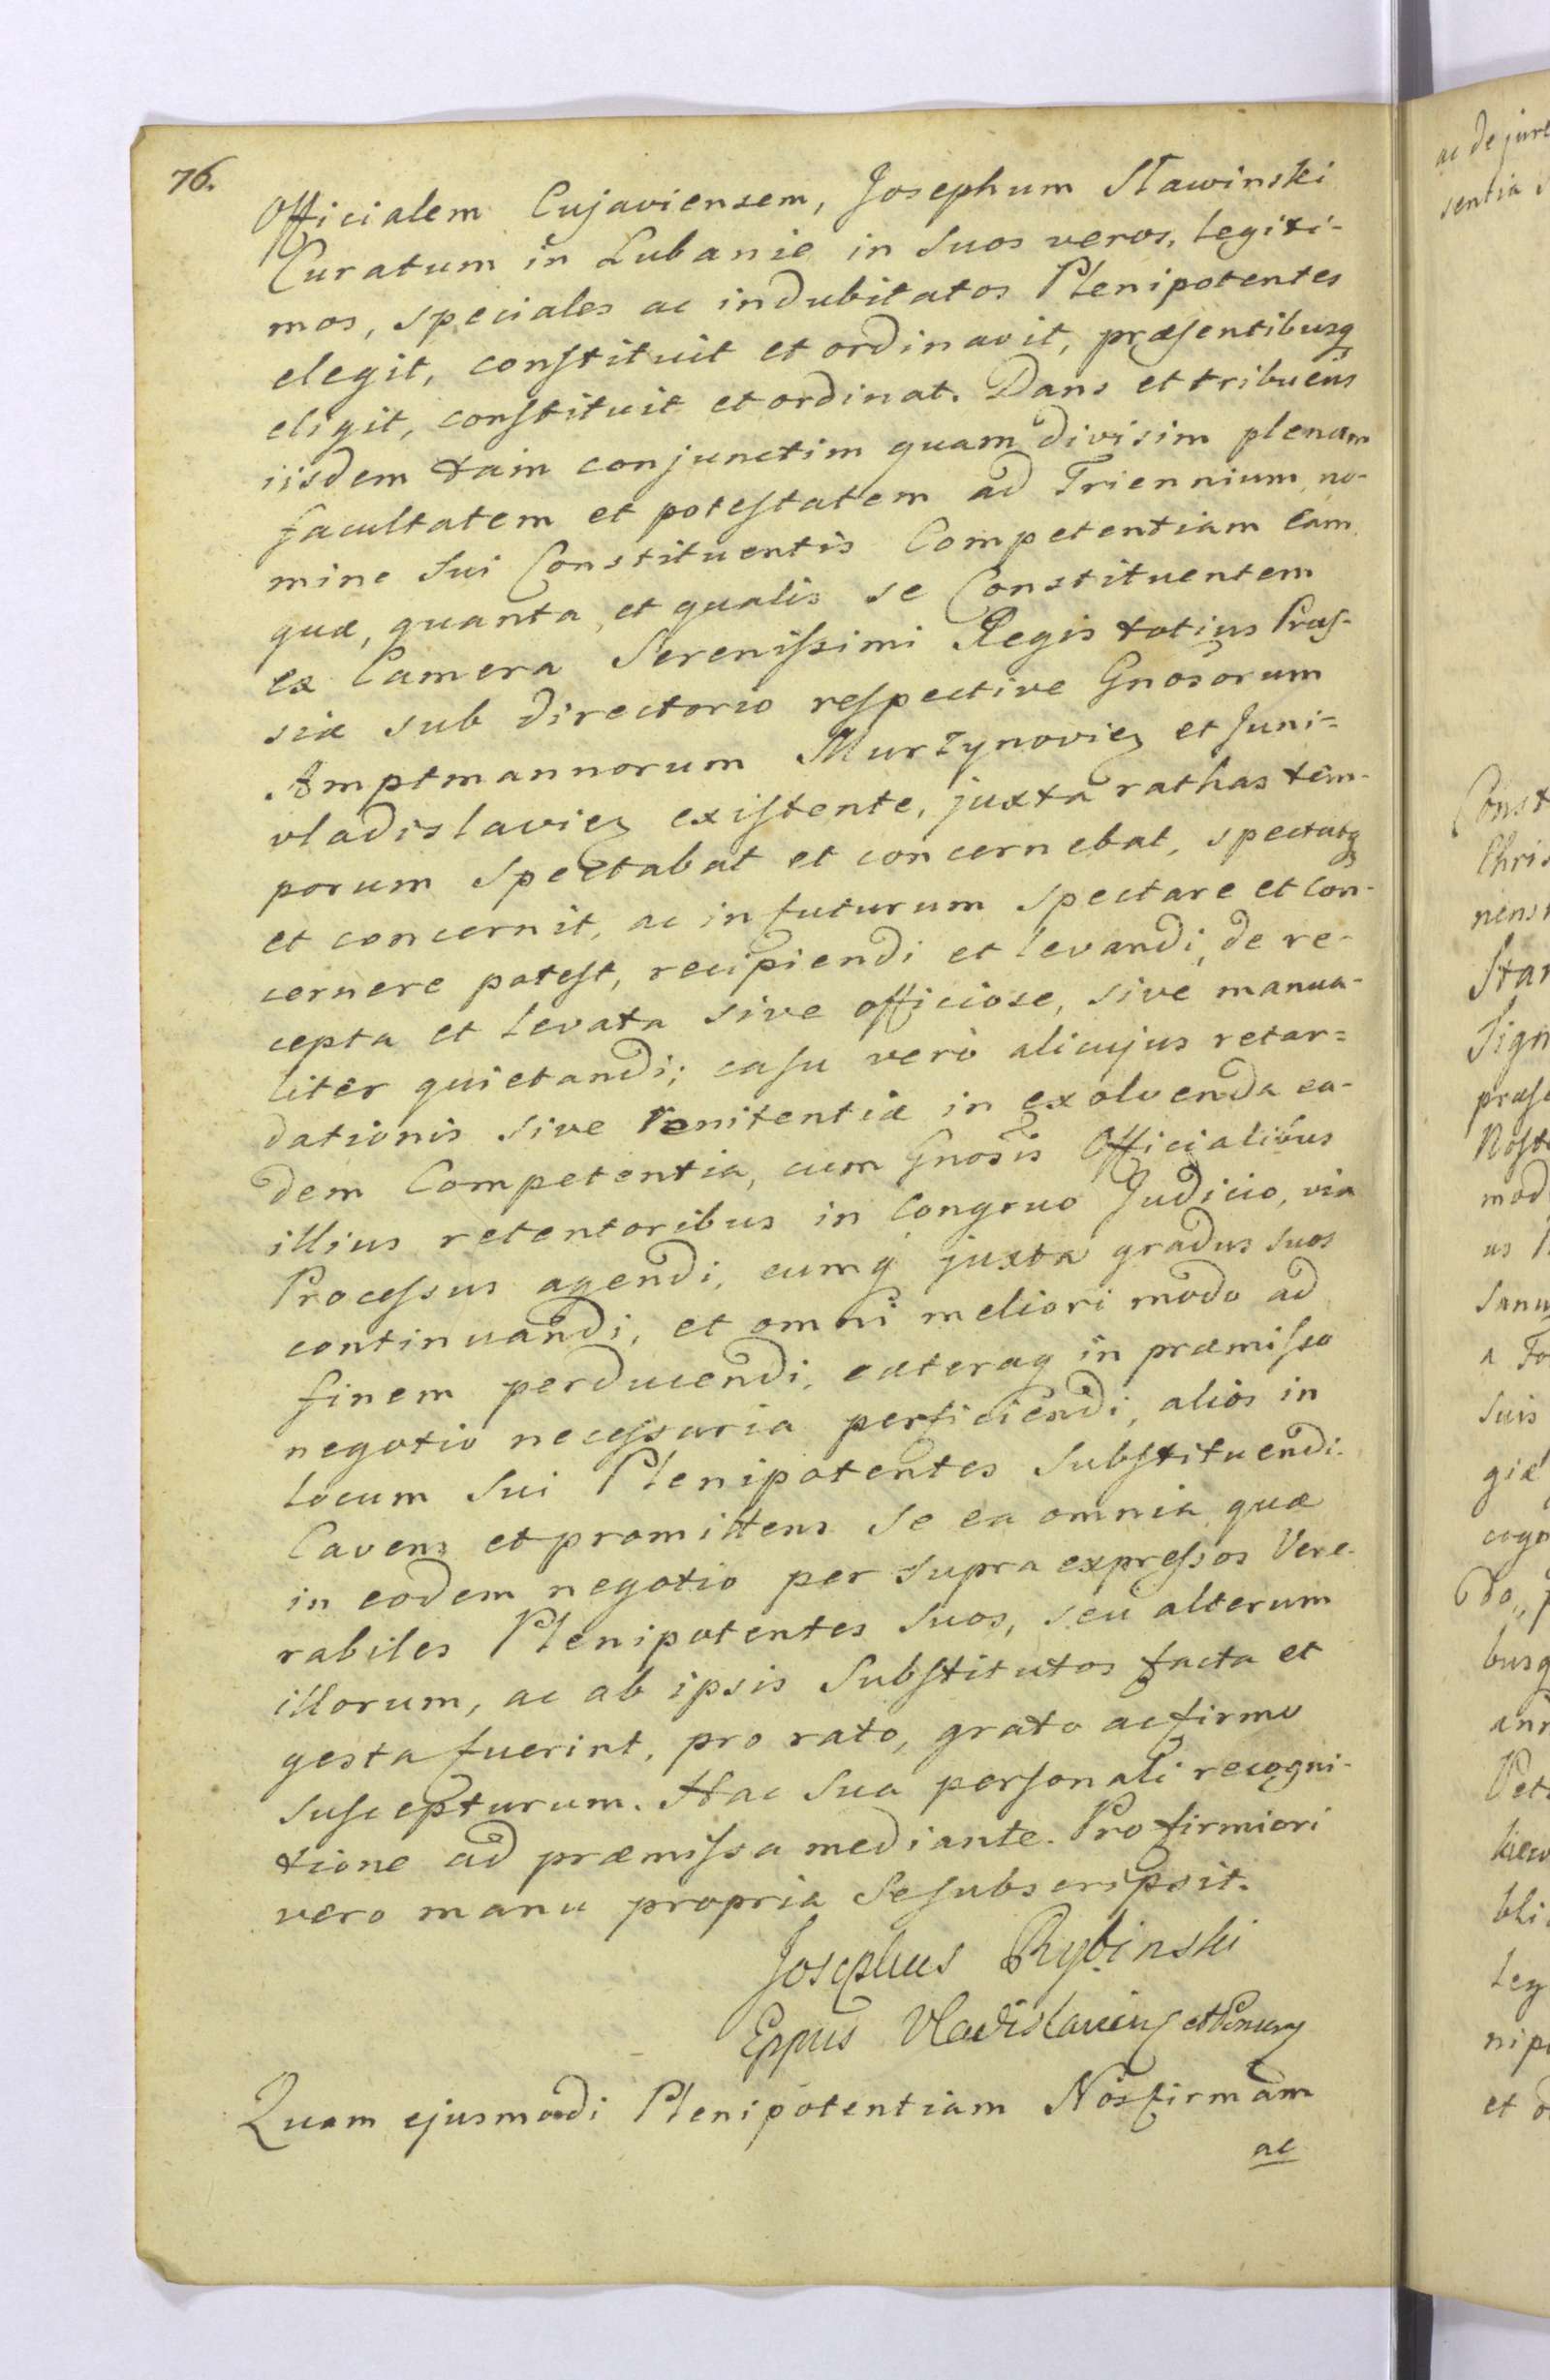 76.
Officialem Cujaviensem, Josephum Stawinski
Curatum in Lubanie in Suos veros, legiti-
mos, speciales ac indubitatos Plenipotentes
elegit, constituit et ordinavit, præsentibusq
eligit, constituit et ordinat. Dans et tribuens
iisdem tam conjunctim quam divisim plenam
facultatem et potestatem ad Triennium no-
mine Sui Constituentis Competentiam eam
quæ, quanta et qualis se Constituentem
ex Camera Serenissimi Regis totius Prus-
siæ sub directorio respective Gnosorum
Amptmannorum Murzynoviez et Juni=
vladislaviez existente, juxta rathas tem-
porum Spectabat et concernebat, spectatq
et concernit, ac in futurum spectare et con-
cernere potest, recipiendi et levandi, de re-
cepta et levata sive officiose, sive manua-
liter quietandi; casu vero alicujus retar=
dationis sive renitentiæ in exolvenda ea-
dem Competentia, cum Gnosis Officialibus
illius retentoribus in Congruo Judicio, via
Processus agendi, eumq juxta gradus suos
continuandi, et omni meliori modo ad
finem perducendi, cæteraq in præmisso
negotio necessaria perficiendi, alios in
locum Sui Plenipotentes Substituendi.
Cavens et promittens Se ea omnia quæ
in eodem negotio per Supra expressos Vene-
rabiles Plenipotentes Suos, seu alterum
illorum, ac ab ipsis Substitutos facta et
gesta fuerint, pro rato, grato ac firmo
suscepturum. Hac Sua personali recogni-
tione ad præmissa mediante. Pro firmiori
vero manu propria Se subscripsit.
Josephus Rybinski
Eppus Vladislavien et
Quam ejusmodi Plenipotentiam Nos firmam
ac
ac de jure
sentia
Const
Chris
nens
Stan
Sign
præs
Nost
mod
us
Sanu
a Fo
Suis
giæ
cogn
do,
busq
ann
Pet
kiew
bli
Leg
nip
et